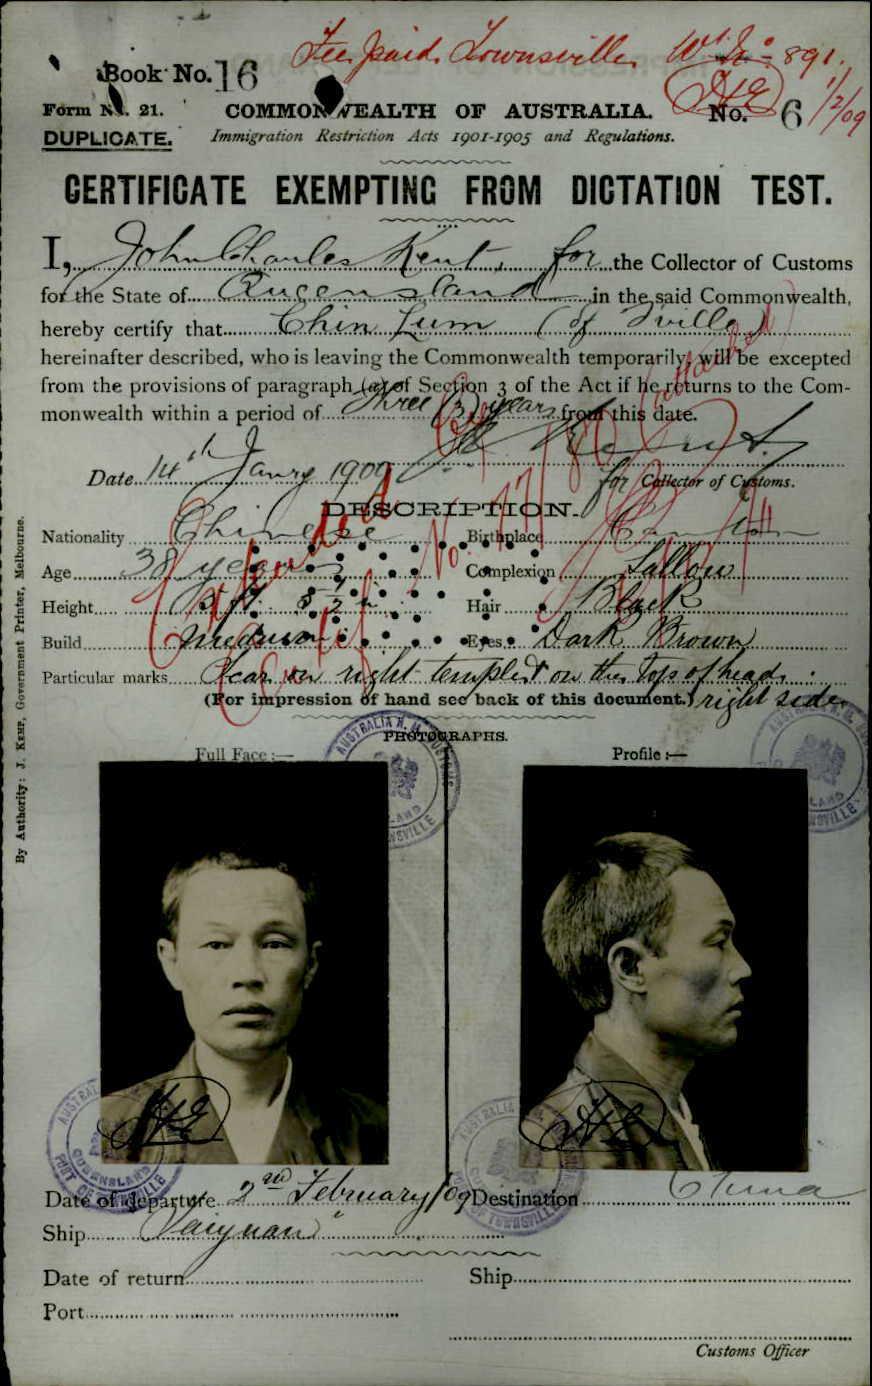 Fee paid Townsville 891.
1/2/09
Book No. 16
Form No. 21. COMMONWEALTH OF AUSTRALIA. No. 6
DUPLICATE. Immigration Restriction Acts 1901-1905 and Regulations.
CERTIFICATE EXEMPTING FROM DICTATION TEST.
I, John Charles Kent, for the Collector of Customs
for the State of Queensland in the said Commonwealth,
hereby certify that Chin Lum (of T'ville)
hereinafter described, who is leaving the Commonwealth temporarily, will be excepted
from the provisions of paragraph (a) of Section 3 of the Act if he returns to the Com-
monwealth within a period of Three (3) years from this date.
Date 14th Janry 1909 for Collector of Customs.
DESCRIPTION.
Nationality Chinese Birthplace Canton
Age 38 years Complexion Sallow
Height 5 ft. Hair Black
Build medium Eyes Dark Brown
Particular marks Scar on right temple & on the top of head
(For impression of hand see back of this document.) right side
PHOTOGRAPHS.
Full Face :— Profile :—
Date of departure 2nd February/09 Destination China
Ship "Taiyuan"
Date of return Ship
Port
Customs Officer
By Authority: J. KEMP, Government Printer, Melbourne.